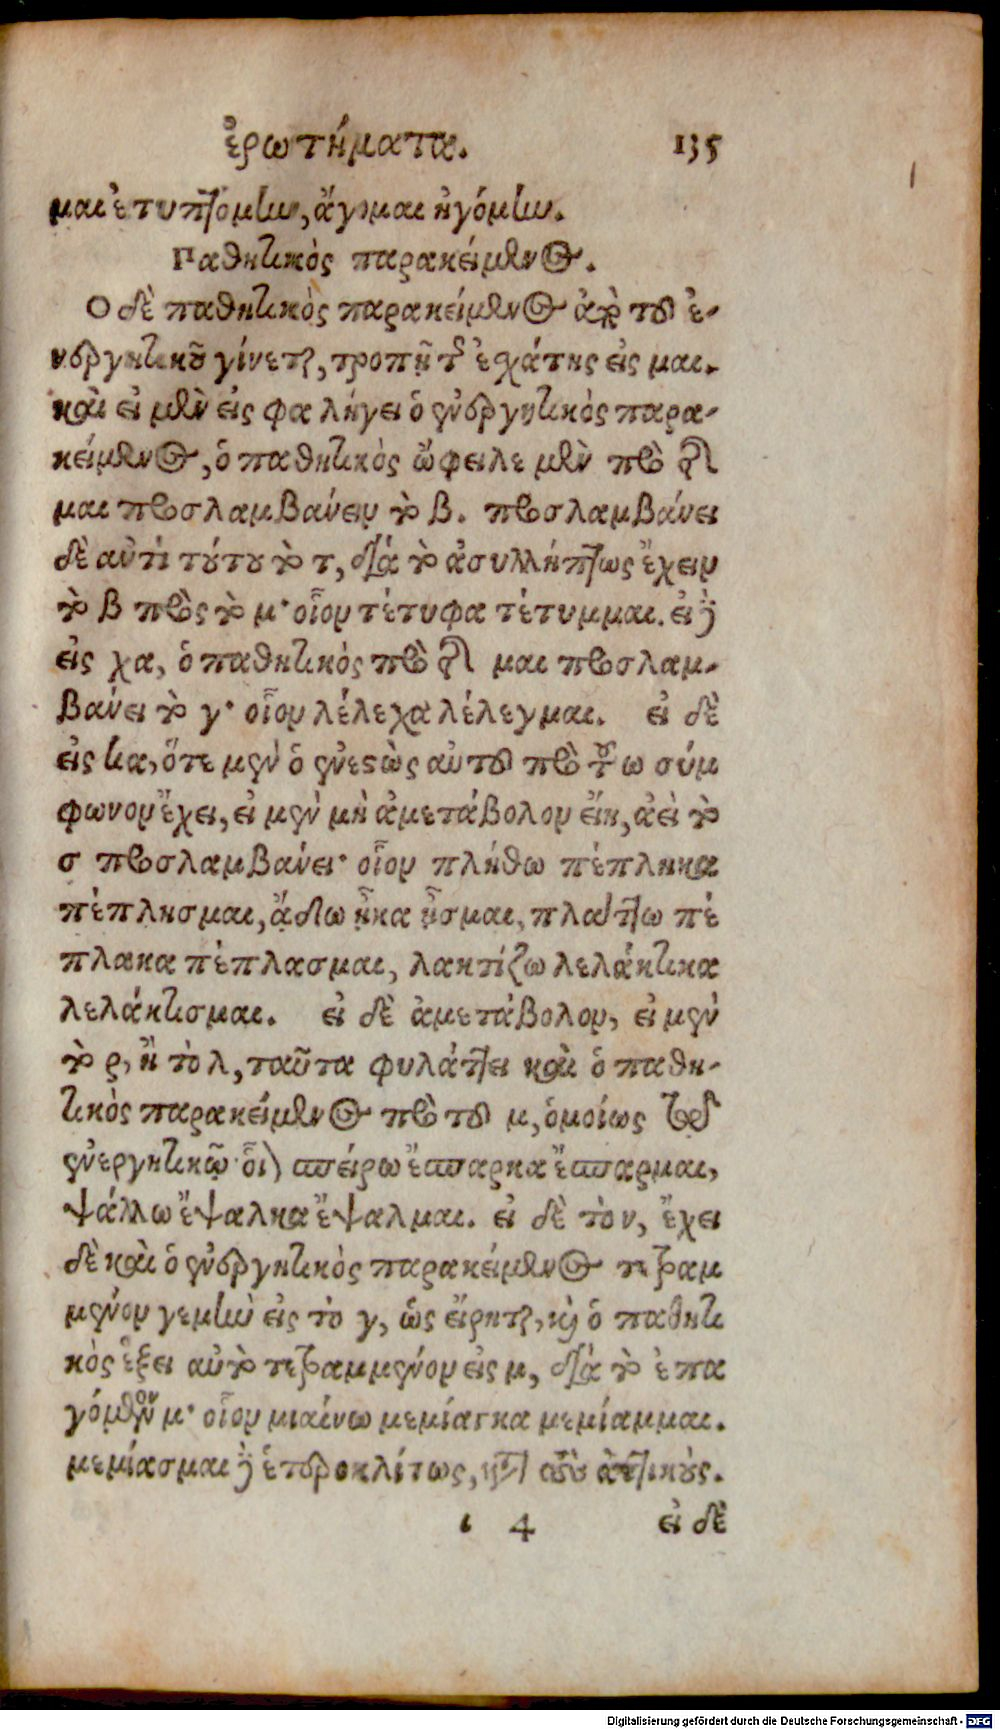 ἐρωτήματα. 135
μαι ἐτυπτόμην, ἄγομαι ἠγόμην.
Παθητικὸς παρακείμενος.
Ο δὲ παθητικὸς παρακείμενος ἀπὸ τοῦ ἐ-
νεργητικοῦ γίνεται, τροπῇ τῆς ἐσχάτης εἰς μαι.
καὶ εἰ μὲν εἰς φα λήγει ὁ ἐνεργητικὸς παρα-
κείμενος, ὁ παθητικὸς ὤφειλε μὲν πρὸ τῆς
μαι προσλαμβάνειν τὸ β. προσλαμβάνει
δὲ ἀντὶ τούτου τὸ τ, διὰ τὸ ἀσυλλήπτως ἔχειν
τὸ β πρὸς τὸ μ· οἷον τέτυφα τέτυμμαι. εἰ δὲ
εἰς χα, ὁ παθητικὸς πρὸ τῆς μαι προσλαμ-
βάνει τὸ γ· οἷον λέλεχα λέλεγμαι. εἰ δὲ
εἰς κα, ὅτε μὲν ὁ ἐνεστὼς αὐτοῦ πρὸ τοῦ ω σύμ
φωνον ἔχει, εἰ μὲν μὴ ἀμετάβολον εἴη, ἀεὶ τὸ
σ προσλαμβάνει· οἷον πλήθω πέπληκα
πέπλησμαι, ᾄδω ᾖκα ᾖσμαι, πλάττω πέ
πλακα πέπλασμαι, λακτίζω λελάκτικα
λελάκτισμαι. εἰ δὲ ἀμετάβολον, εἰ μὲν
τὸ ρ, ἢ τὸ λ, ταῦτα φυλάττει καὶ ὁ παθη-
τικὸς παρακείμενος πρὸ τοῦ μ, ὁμοίως τῷ
ἐνεργητικῷ· οἷον σπείρω ἔσπαρκα ἔσπαρμαι,
ψάλλω ἔψαλκα ἔψαλμαι. εἰ δὲ τὸ ν, ἔχει
δὲ καὶ ὁ ἐνεργητικὸς παρακείμενος τετραμ
μένον μὲν εἰς τὸ γ, ὡς εἴρηται, καὶ ὁ παθητι
κὸς ἕξει αὐτὸ τετραμμένον εἰς μ, διὰ τὸ ἐπα
γόμενον μ· οἷον μιαίνω μεμίαγκα μεμίαμμαι.
μεμίασμαι δὲ ἑτεροκλίτως, κατὰ τοὺς ἀττικούς.
ι 4 εἰ δὲ
Digitalisierung gefördert durch die Deutsche Forschungsgemeinschaft - DFG